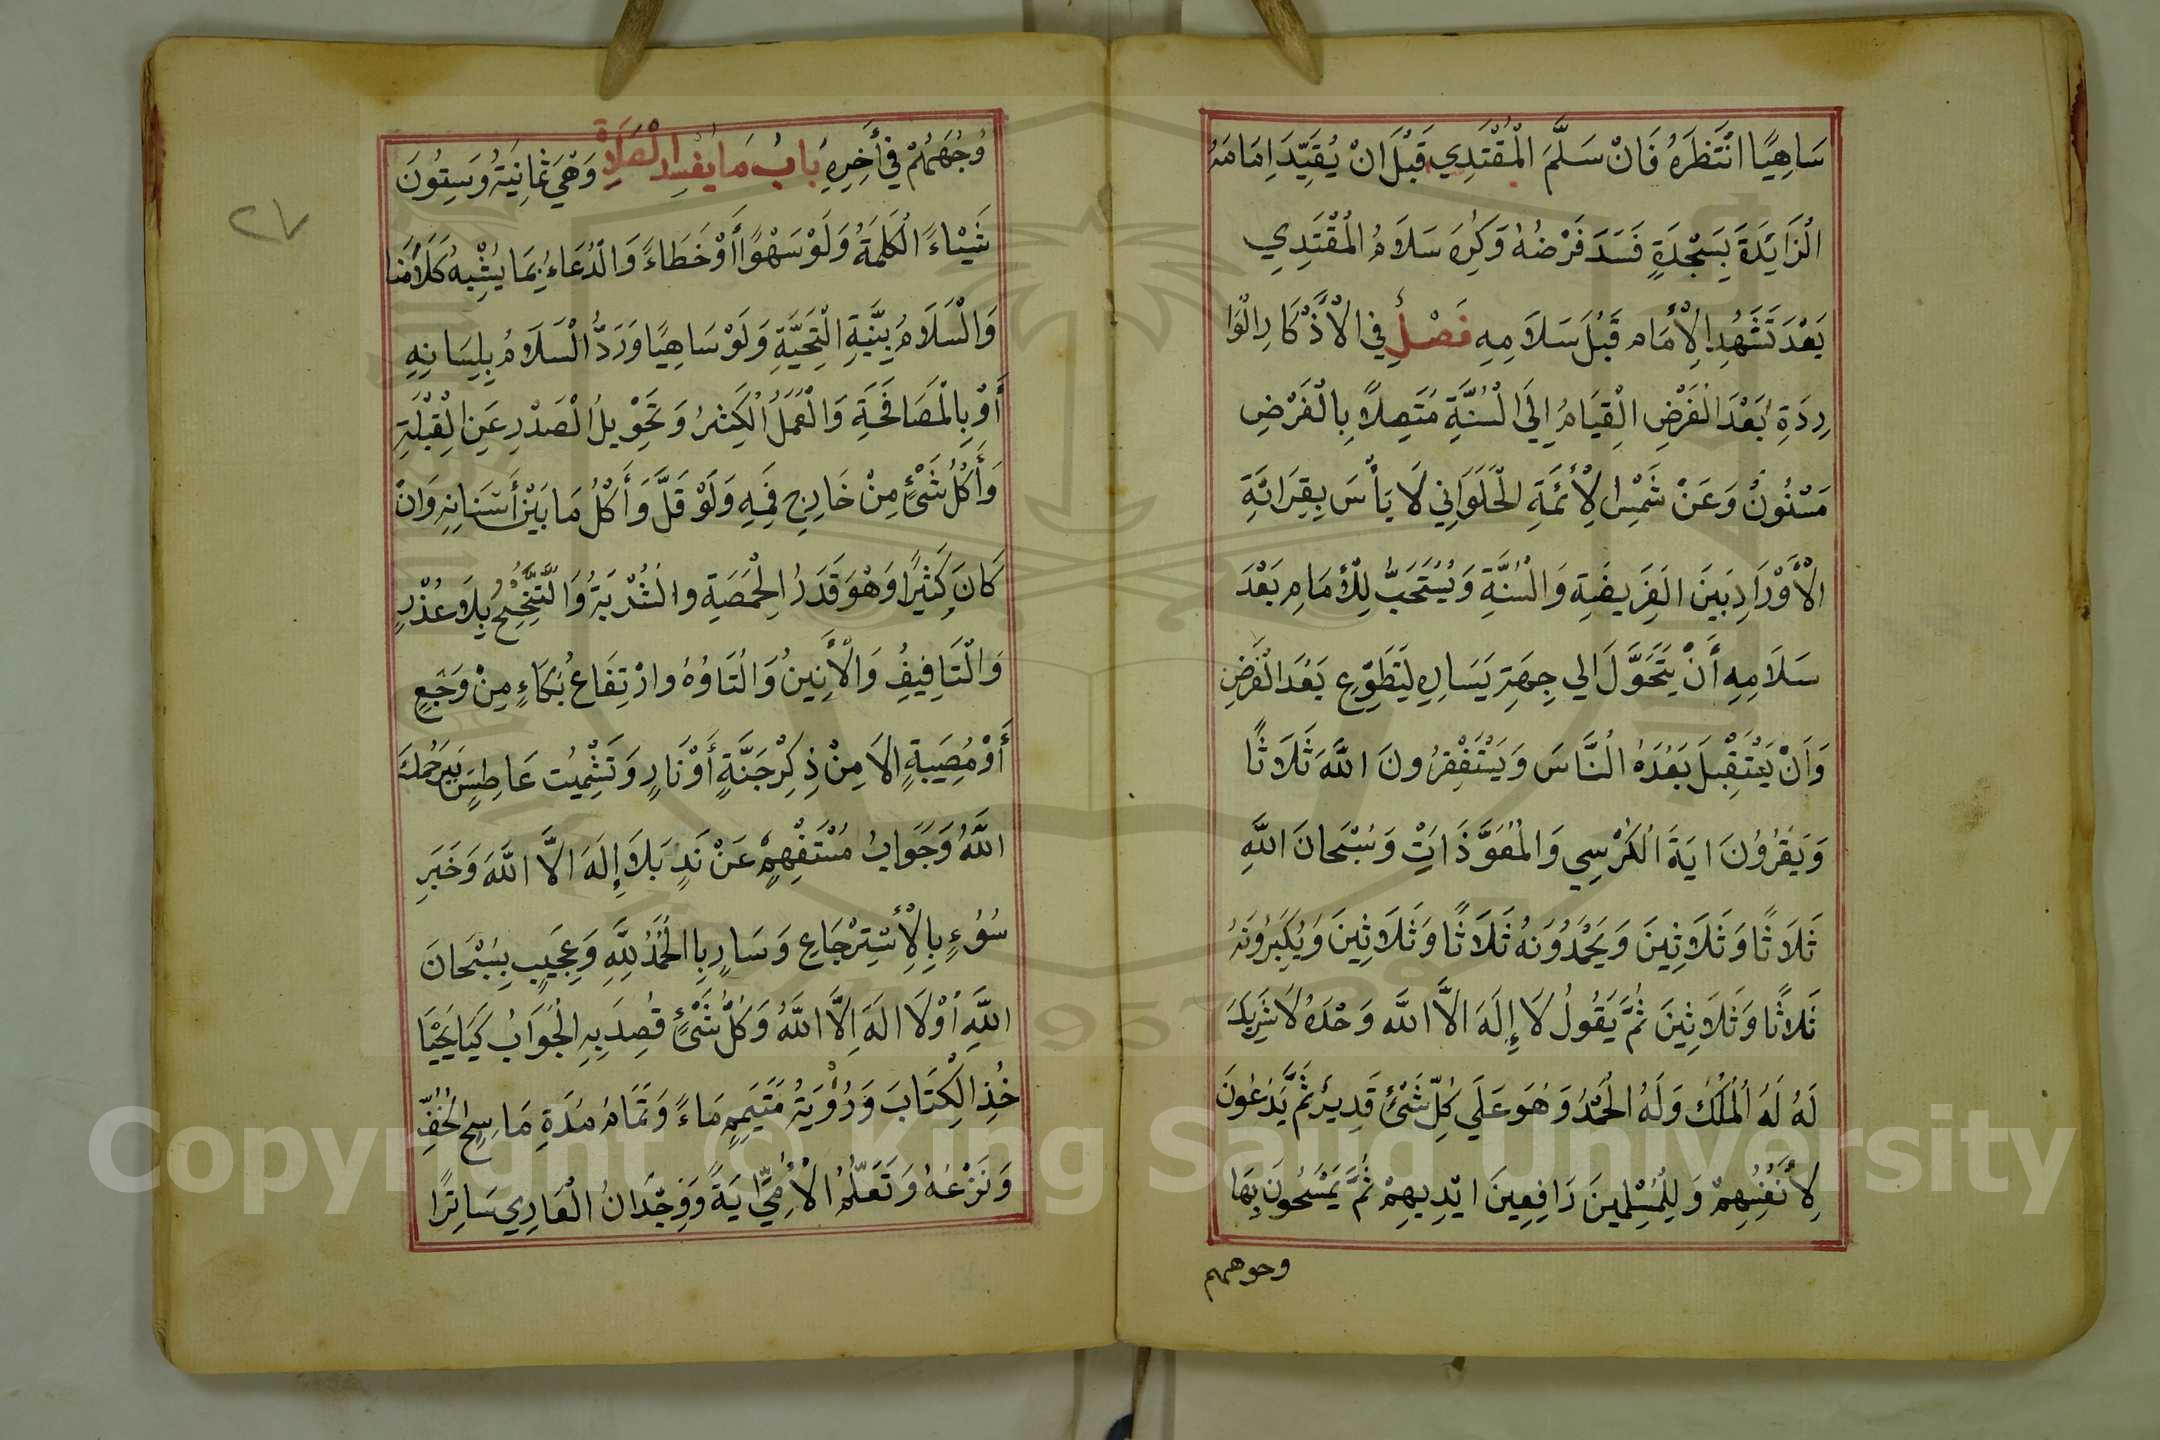 سَاهِيًا انْتَظَرَهُ فَاِنْ سَلَّمَ الْمُقْتَدِي قَبْلَ اَنْ يُقَيِّدَ اِمَامَهُ
الْزَايَدَةَ بِسَجْدَةٍ فَسَدَ فَرْضُهُ وَكُرِهَ سَلَامُ الْمُقْتَدِي
بَعْدَ تَشَهُّدِ الْأِمَامِ قَبْلَ سَلَامِهِ فَصْلٌ فِي الْأَذْكَارِ الْوَا
رِدَةِ بَعْدَ الْفَرْضِ الْقِيَامُ اِلَى الْسُنَّةِ مُتَصِلاً بِالْفَرْضِ
مَسْنُونٌ وَعَنْ شَمْسِ الْأَئمَّةِ الْحَلَوَانِي لَا بَأْسَ بِقِرَائَةِ
الْأَوْرَادِ بَينَ الْفَرِيضَةِ وَالْسُنَّةِ وَيُسْتَحَبُّ لِلْأمَامِ بَعْدَ
سَلَامِهِ أَنْ يَتَحَوَّلَ الي جِهَةِ يَسَارِه لِتَطَوُّعِ بَعْدَ الْفَرْضِ
وَاَنْ يَسْتَقْبِلَ بَعْدَهُ الْنَّاسَ وَيَسْتَغْفِرُونَ اللَّهَ ثَلَاثًا
وَيَقْرُؤُنَ ايَةَ الْكُرْسِي وَالْمُعَوَّذَاتِ وَسُبْحَانَ اللَّهِ
ثَلَاثًا وَثَلَاثِينَ وَيَحْمَدُونَهُ ثَلَاثًا وَثَلَاثِينَ وَيُكَبِّرُونَهُ
ثَلَاثًا وَثَلَاثِينَ ثُمَّ يَقُولُ لَا إِلَهَ الاَّ اللَّه وَحْدَهُ لَا شَرِيكَ
لَهُ لَهُ الْمُلْكُ وَلَهُ الْحَمْدُ وَهُوَ عَلَي كُلِّ شَيْئٍ قَدِيرٌ ثُمَّ يَدْعُونَ
لِأَنْفُسِهِمْ وَلِلْمُسْلِمينَ رَافِعِينَ ايْدِيهِمْ ثُمَّ يَمْسَحُونَ بِهَا
وجوههم
وُجُهَهُمْ فِي أَخِرِهِ بَابُ مَا يفْسِدُ الْصَلَاةَ وَهْيَ ثَمَانِيَةُ وَسِتُونَ
شَيْاءً الْكَلِمَةُ وَلَوْ سَهْوًا أَوْ خَطَاءً وَالْدُعَاءُ بِمَا يُشْبِهُ كَلَامَنَا
وَالْسَلَامُ بِنِيَّةِ الْتَحِيَّةِ وَلَوْ سَاهِيًا وَرَدُّ الْسَلَامُ بِلِسَانِهِ
أَوْ بِالْمَصَافَحَةِ وَالْعَمَلُ الْكَثِيرُ وَتَحْوِيلُ الْصَدْرِ عَنِ الْقِبْلَةِ
وَأَكْلُ شَيْئٍ مِنْ خَارِجِ فَمِهِ وَلَوْ قَلَّ وَأَكْلُ مَا بَيْنَ أَسْنَانِهِ وَانْ
كَانَ كَثِيرًا وَهُوَ قَدَرُ الْحِمَصَةِ والْشُرْبَةُ وَالْتَّنَحْنِحُ بِلَا عُذْرٍ
وَالْتَافِيفُ وَالْأَنِينُ وَالْتَاوُهُ وارْتِفَاعُ بُكَاءٍ مِنْ وَجَعٍ
أَوْ مُصِيبَةٍ الَا مِنْ ذِكِرْ جَنَّةٍ أَوْ نَارٍ وَتَشْمِيْت عَاطِسٍ بِيَرْحَمُكَ
اللَّهُ وَجَوَابُ مُسْتَفْهِمٍ عَنْ نَدٍ بَلَا إِلَهَ الاَّ اللَّهَ وَخَبَرِ
سُوْءٍ بِالْأِسْتِرْجَاعِ وَسَارٍ بِا الْحَمْدُ لِلَّهِ وَعَجَيبٍ بِسُبْحَانَ
اللَّهِ اَوْ لَا الَهَ اِلَّا اللَّهُ وَكُلُّ شَيْئٍ قُصِدَ بِهِ الْجَوَابُ كَيَا يَحْيَا
خُذِ الْكِتَابَ وَرُؤْيَةُ مُتَيَمِمٍ مَاءً وَتَمَامُ مُدَةِ مَاسِحِ الْخُفِّ
وَنَزْعُهُ وَتَعَلُّمُ الْأُمِيِّ ايَةً وَوِجْدَانُ الْعَارِي سَاتِرًا
٢٧
1957
Copyright © King Saud University